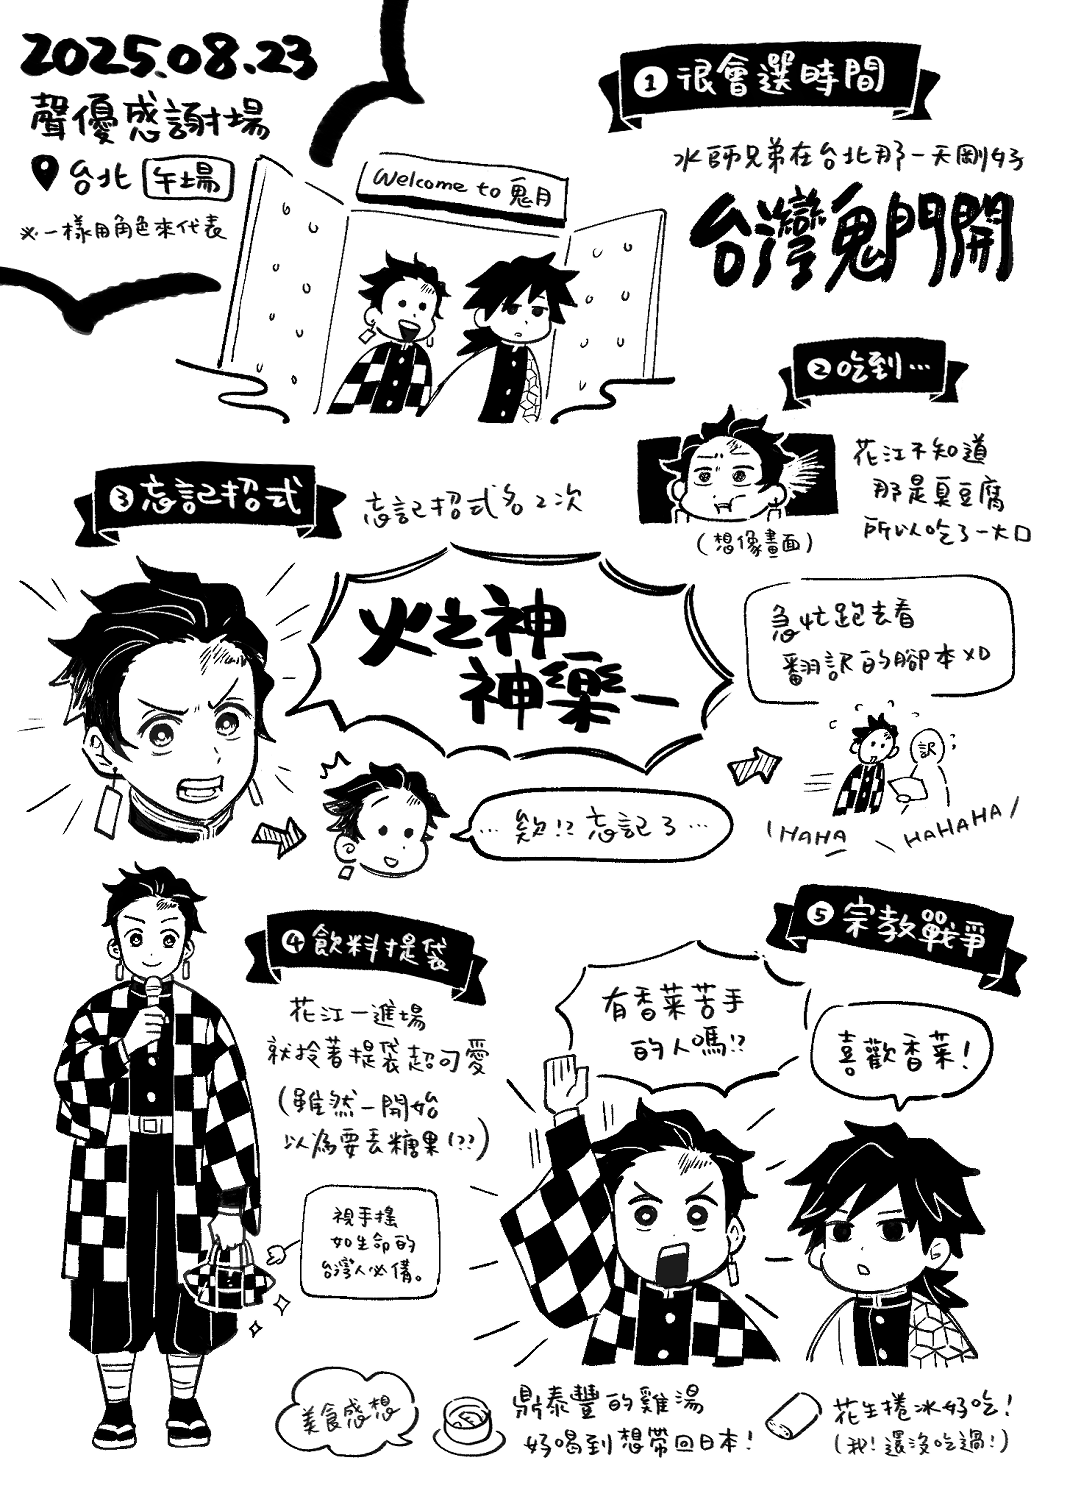 2025.08.23
聲優感謝場
台北 午場
※一樣用角色來代表
Welcome to 鬼月
1 很會選時間
水師兄弟在台北那一天剛好
台灣鬼門開
2 吃到…
花江不知道
那是臭豆腐
所以吃了一大口
(想像畫面)
3 忘記招式
忘記招式名2次
火之神
神樂—
…欸!?忘記了…
急忙跑去看
翻訳的腳本XD
訳
HAHA
HAHAHA
4 飲料提袋
花江一進場
就拎著提袋超可愛
(雖然一開始
以為要丟糖果(??)
視手搖
如生命的
台灣人必備。
5 宗教戰爭
有香菜苦手
的人嗎!?
喜歡香菜!
美食感想
鼎泰豐的雞湯
好喝到想帶回日本!
花生捲冰好吃!
(我!還沒吃過!)